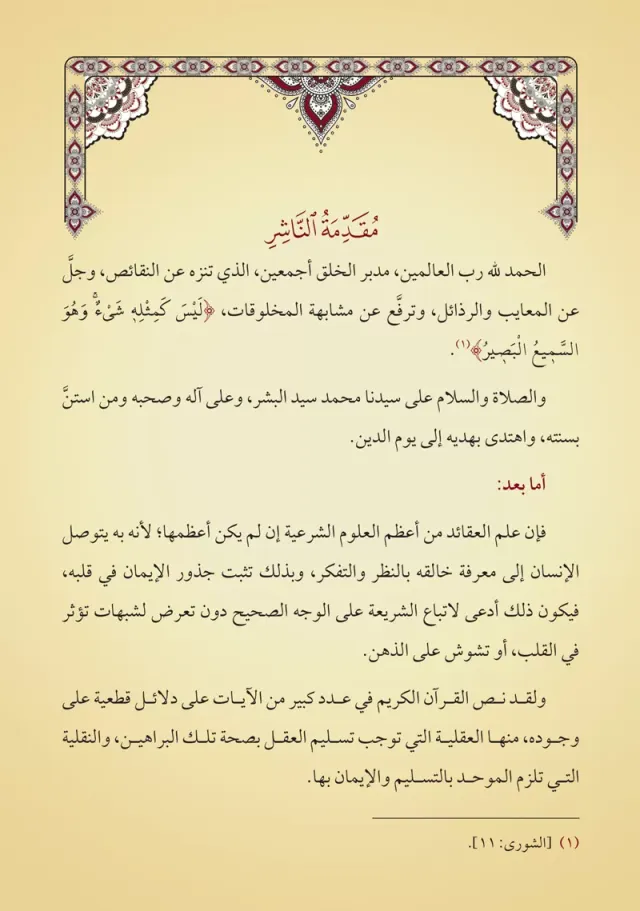 مُقَدِّمَةُ ٱلنَّاشِرِ
الحمد لله رب العالمين، مدبر الخلق أجمعين، الذي تنزه عن النقائص، وجلَّ
عن المعايب والرذائل، وترفَّع عن مشابهة المخلوقات، ﴿لَيْسَ كَمِثْلِهِۦ شَىْءٌۖ وَهُوَ
السَّمِيعُ الْبَصِيرُ﴾(١).
والصلاة والسلام على سيدنا محمد سيد البشر، وعلى آله وصحبه ومن استنَّ
بسنته، واهتدى بهديه إلى يوم الدين.
أما بعد:
فإن علم العقائد من أعظم العلوم الشرعية إن لم يكن أعظمها؛ لأنه به يتوصل
الإنسان إلى معرفة خالقه بالنظر والتفكر، وبذلك تثبت جذور الإيمان في قلبه،
فيكون ذلك أدعى لاتباع الشريعة على الوجه الصحيح دون تعرض لشبهات تؤثر
في القلب، أو تشوش على الذهن.
ولقد نص القرآن الكريم في عدد كبير من الآيات على دلائل قطعية على
وجوده، منها العقلية التي توجب تسليم العقل بصحة تلك البراهين، والنقلية
التي تلزم الموحد بالتسليم والإيمان بها.
(١) [الشورى: ١١].